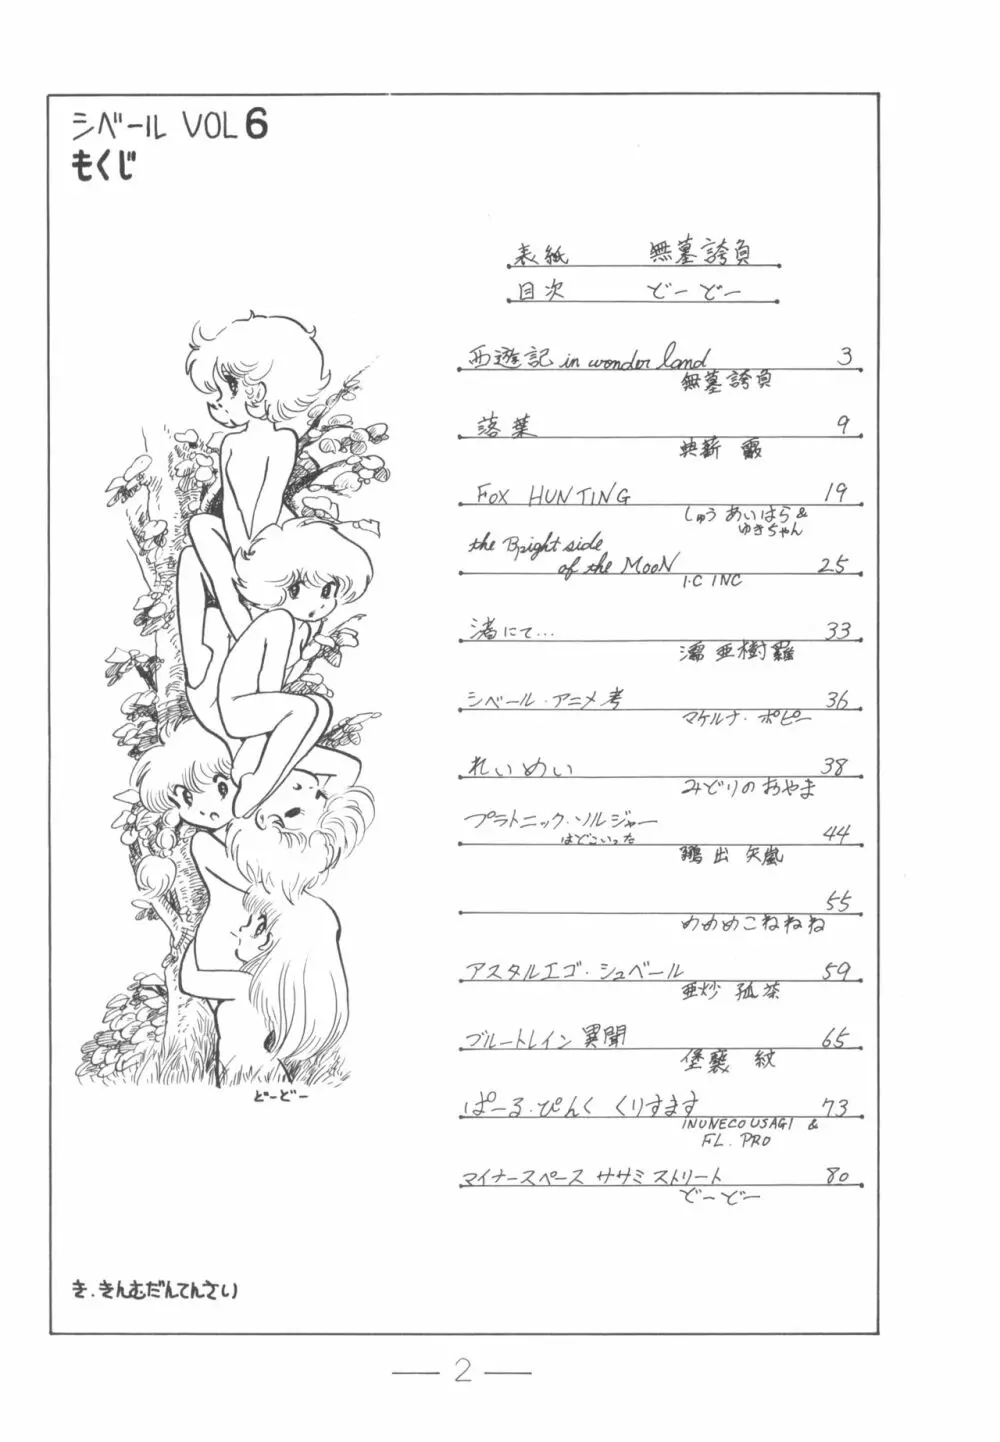 シベール VOL 6
もくじ
表紙 無墓誇負
目次 どーどー
西遊記 in wonder land 3
無墓誇負
落葉 9
典薪 霰
FOX HUNTING 19
しゅう あいはら &
ゆきちゃん
the Bright side
of the MOON 25
I.C INC
渚にて… 33
濡 亜樹羅
シベール・アニメ考 36
マケルナ・ポピー
れいめい 38
みどりの おやま
プラトニック・ソルジャー
はどこいった 44
鵶出 矢嵐
55
めかめこねねね
アスタルエゴ・シュベール 59
亜炒 孤茶
ブルートレイン 異聞 65
堡蘷 紋
ぱーる・ぴんく くりすます 73
INUNECOUSAGI &
FL. PRO
マイナースペース ササミ ストリート 80
どーどー
どーどー
き.きんむだんてんさい
— 2 —